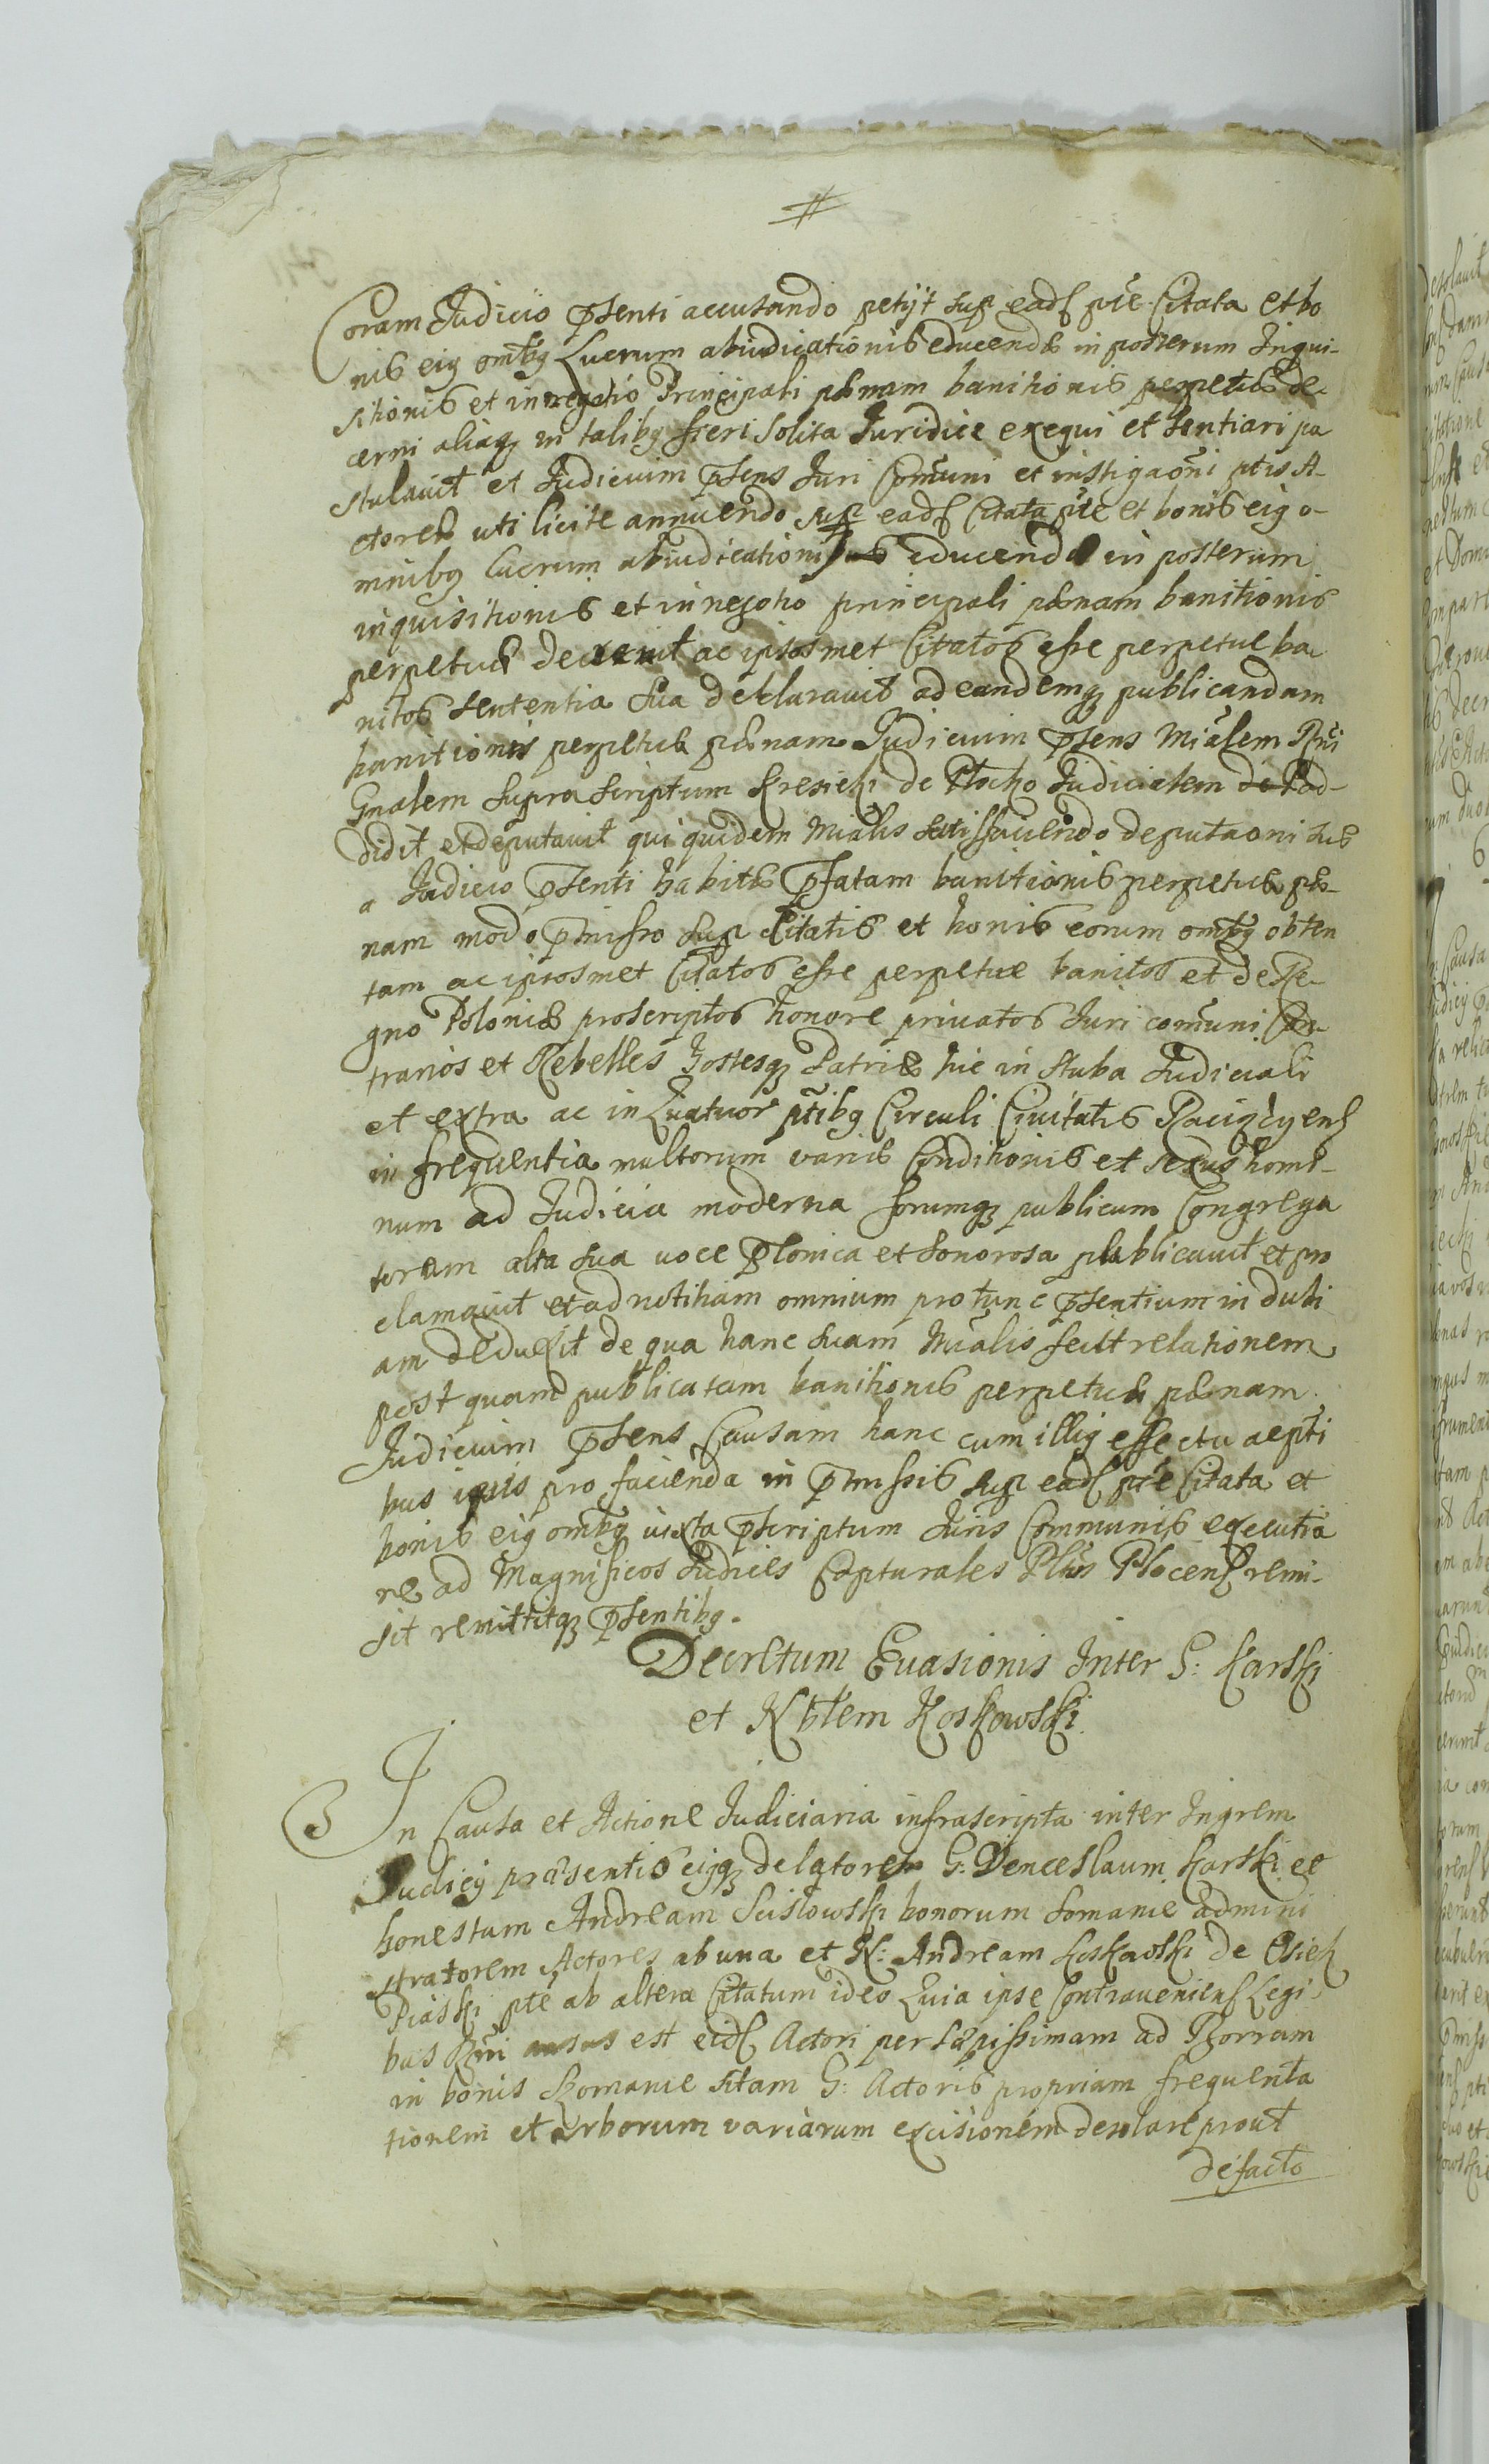 #
Coram Judicio pſenti accusando petijt sup eadſ pte Citata et bo
nis eiꝯ omibꝯ Lucrum abiudicationis educendæ in posterum Inqui-
sitionis et in negotio Principali pænam banitionis perpetuæ de-
cerni aliaqꝫ in talibꝯ fieri solita Juridice exequi et sentiari po
stulavit et Judicium pſens Juri Comuni et instigaoni ptis A-
ctoreæ uti licite annuendo sup eadſ Citata pte et bonis eiꝯ o-
mnibꝯ lucrum abiudicationis educendæ in posterum
inquisitionis et in negotio principali pænam banitionis
perpetuæ decrevit ac ipsosmet Citatos esse perpetue ba
nitos sententia sua declaravit ad eandemqꝫ publicandam
banitionis perpetuæ pænam Judicium pſens Mialem Rni
Gnalem suprascriptum Kresicki de Plocko Judicialem ad-
didit et deputavit qui quidem Mialis satisfaciendo deputaoni suæ
a Judicio pſenti habitæ pfatam banitionis perpetuæ pæ-
nam modo pmisso sup Citatis et bonis eorum omibꝯ obten
tam ac ipsosmet Citatos esse perpetue banitos et de Re-
gno Poloniæ proscriptos honore privatos Juri comuni Con-
trarios et Rebelles Hostesqꝫ Patriæ hic in stuba Judiciali
et extra ac in Quatuor ptibꝯ Circuli Civitatis Raciązyenſ
in frequentia multorum variæ Conditionis et sexus homi-
num ad Judicia moderna forumqꝫ publicum Congrega
torum alta sua voce Plonica et sonorosa publicavit et pro
clamavit et ad notitiam omnium pro tunc pſentium indubi
am deduxit de qua hanc suam Mialis fecit relationem
post quam publicatam banitionis perpetuæ pænam
Judicium pſens Causam hanc cum illiꝯ effectu ac pti
bus ipsis pro facienda in pmissis sup eadſ pte Citata et
bonis eiꝯ omibꝯ iuxta pſcriptum Juris Communis executio
ne ad Magnificos Judices Capturales Pltus Plocenſ remi-
sit remittitqꝫ pſentibꝯ.
Decretum Evasionis Inter G: Karski
et Nbłem Koskowski.
In Causa et Actione Judiciaria infrascripta inter Ingrem
Judicij præsentis eiꝯqꝫ delatorem G: Venceslaum Karski et
honestum Andream Scisłowski bonorum Komanie admini
stratorem Actores ab una et N: Andream Koskowski de Osiek
Piaski pte ab altera Citatum ideo Quia ipse Contravenienſ Legi-
bus Rni ausus est eidſ Actori per sæpissimam ad Borram
in bonis Komanie sitam G: Actoris propriam frequenta
tionem et Arborum variarum excisionem desolare prout
defacto